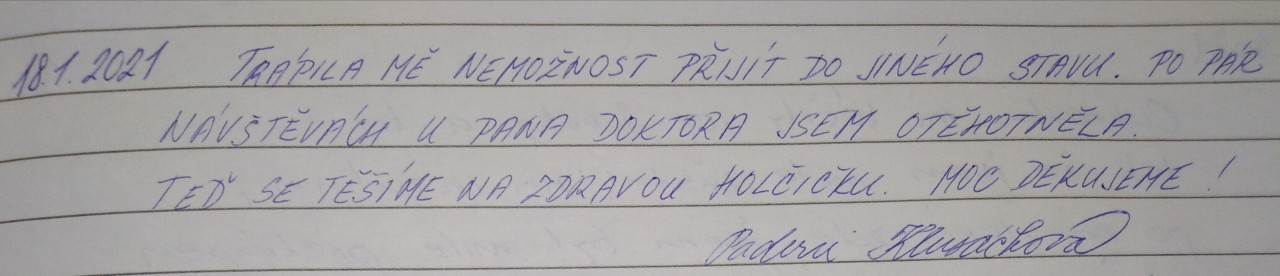 18.1.2021 TRÁPILA MĚ NEMOŽNOST PŘIJÍT DO JINÉHO STAVU. PO PÁR
NÁVŠTĚVÁCH U PANA DOKTORA JSEM OTĚHOTNĚLA.
TEĎ SE TĚŠÍME NA ZDRAVOU HOLČIČKU. MOC DĚKUJEME!